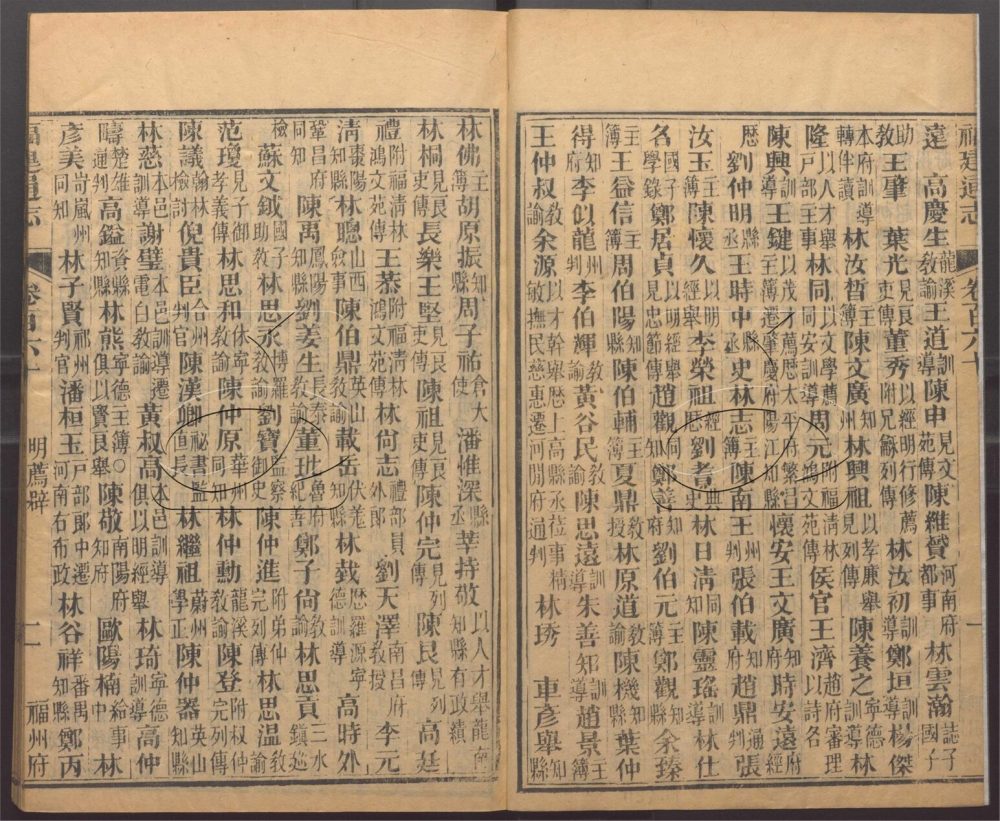 福建通志 卷百六十 一
遠 高慶生龍溪教諭 王道訓導 陳申見文苑傳 陳維贊河南府都事 林雲瀚誌子國子
助教 王肇 葉光見良吏傳 董秀以經明行修薦附兄翁列傳 林汝初訓導 鄭垣訓導 楊傑
本府訓導轉伴讀 林汝晳訓導 陳文廣知州 林興祖以孝廉舉見列傳 陳養之寧德訓導 林
隆以人才舉戶部主事 林同以文學薦同安訓導 周元附福清林鴻文苑傳 侯官王濟以詩名趙府審理
陳興訓導 王鍵以茂才薦歷太平府繁昌主簿遷肇慶府陽江知縣 懷安王文廣知府 時安遠府經
歷 劉仲明縣丞 王時中縣丞 史林志主簿 陳南王州判 張伯載知府 趙鼎通判 張
汝玉主簿 陳懷久以明經舉 李榮祖經歷 劉耆典史 林日清同知 陳靈瑤訓導 林仕
名國子學錄 鄭居貞見忠節傳 趙觀同知 鄭善知府 劉伯元主簿 鄭觀知縣 余臻
主簿 王益信主簿 周伯陽知縣 陳伯輔主簿 夏鼎教授 林原道教諭 陳機知縣 葉仲
得知府 李以龍州判 李伯輝教諭 黃谷民教諭 陳思遠訓導 朱善知訓導 趙景主簿
王仲叔教諭 余源以才幹舉歷上高縣丞莅事精敏撫民慈惠遷河間府通判 林琇 車彥舉知縣
林佛主簿 胡原振知縣 周子祐倉大使 潘惟深縣丞 莘持敬以人才舉龍南知縣有政績
林桐見良吏傳 長樂王堅見良吏傳 陳祖見良吏傳 陳仲完見列傳 陳良見列傳 高廷
禮附福清林鴻文苑傳 王恭附福清林鴻文苑傳 林尚志禮部員外郎 劉天澤南昌府教授 李元
清棗陽知縣 林聰山西僉事 陳伯鼎英山教諭 載岳伏羌知縣 林㦸歷羅源寧德訓導 高時外
鞏昌府同知 陳禹鳳陽知縣 劉姜生長泰教諭 董玭魯府紀善 鄭子尚教諭 林思貢三水鎮巡
檢 蘇文鉞國子助教 林思永博羅教諭 劉寶監察御史 陳仲進附弟仲完列傳 林思温教諭
范瓊見子御孝義傳 林思和休寧教諭 陳仲原華州同知 林仲勳龍溪教諭 陳登附權仲完列傳
陳議翰林檢討 倪貴臣合州判官 陳漢卿秘書監直長 林繼祖蔚州學正 陳仲器英山知縣
林慈本邑訓導 謝璧本邑訓導遷電白教諭 黃叔高本邑訓導俱以明經舉 林琦寧德訓導 高仲
疇楚雄通判 高鎰資縣知縣 林熊寧德主簿〇俱以賢良舉 陳敬南陽府知府 歐陽楠給事中 林
彥美岢嵐州同知 林子賢祁州判官 潘桓玉戶部郎中遷河南右布政 林谷祥番禺知縣 鄭丙
福建通志 卷百六十 明薦辟 二 福州府